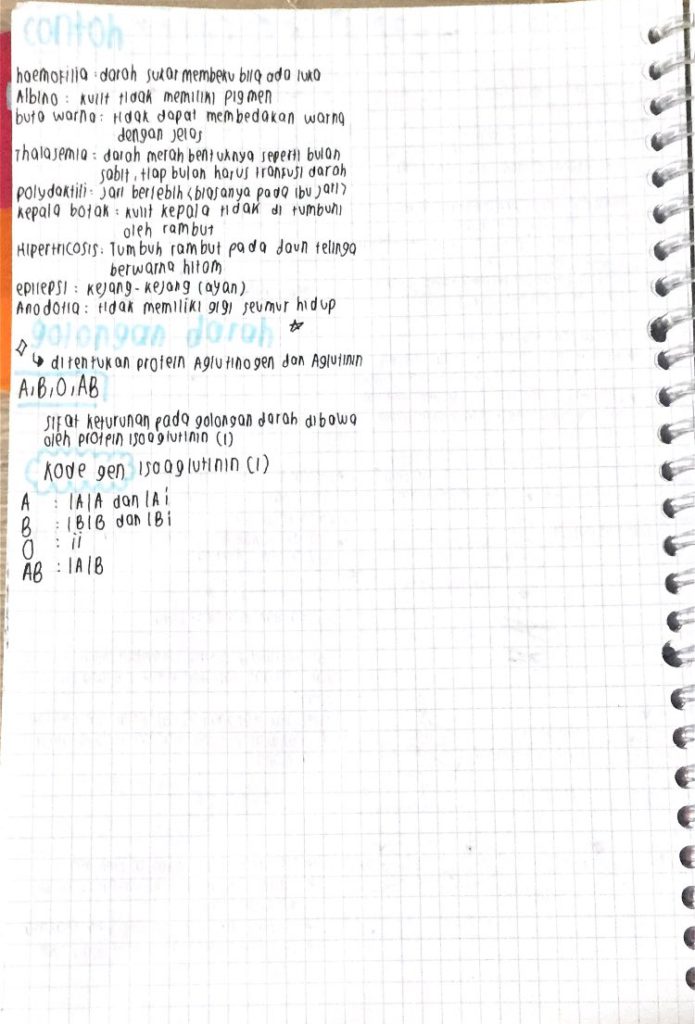 contoh
haemofilia : darah sukar membeku bila ada luka
Albino : kulit tidak memiliki pigmen
buta warna : tidak dapat membedakan warna
dengan jelas
Thalasemia : darah merah bentuknya seperti bulan
sabit, tiap bulan harus transfusi darah
polydaktili : jari berlebih (biasanya pada ibu jari)
kepala botak : kulit kepala tidak di tumbuhi
oleh rambut
Hipertricosis : Tumbuh rambut pada daun telinga
berwarna hitam
epilepsi : kejang-kejang (ayan)
Anodotia : tidak memiliki gigi seumur hidup
golongan darah
↳ ditentukan protein Aglutinogen dan Aglutinin
A, B, O, AB
sifat keturunan pada golongan darah dibawa
oleh protein isoaglutinin (I)
kode gen isoaglutinin (I)
A : IAIA dan IAi
B : IBIB dan IBi
O : ii
AB : IAIB